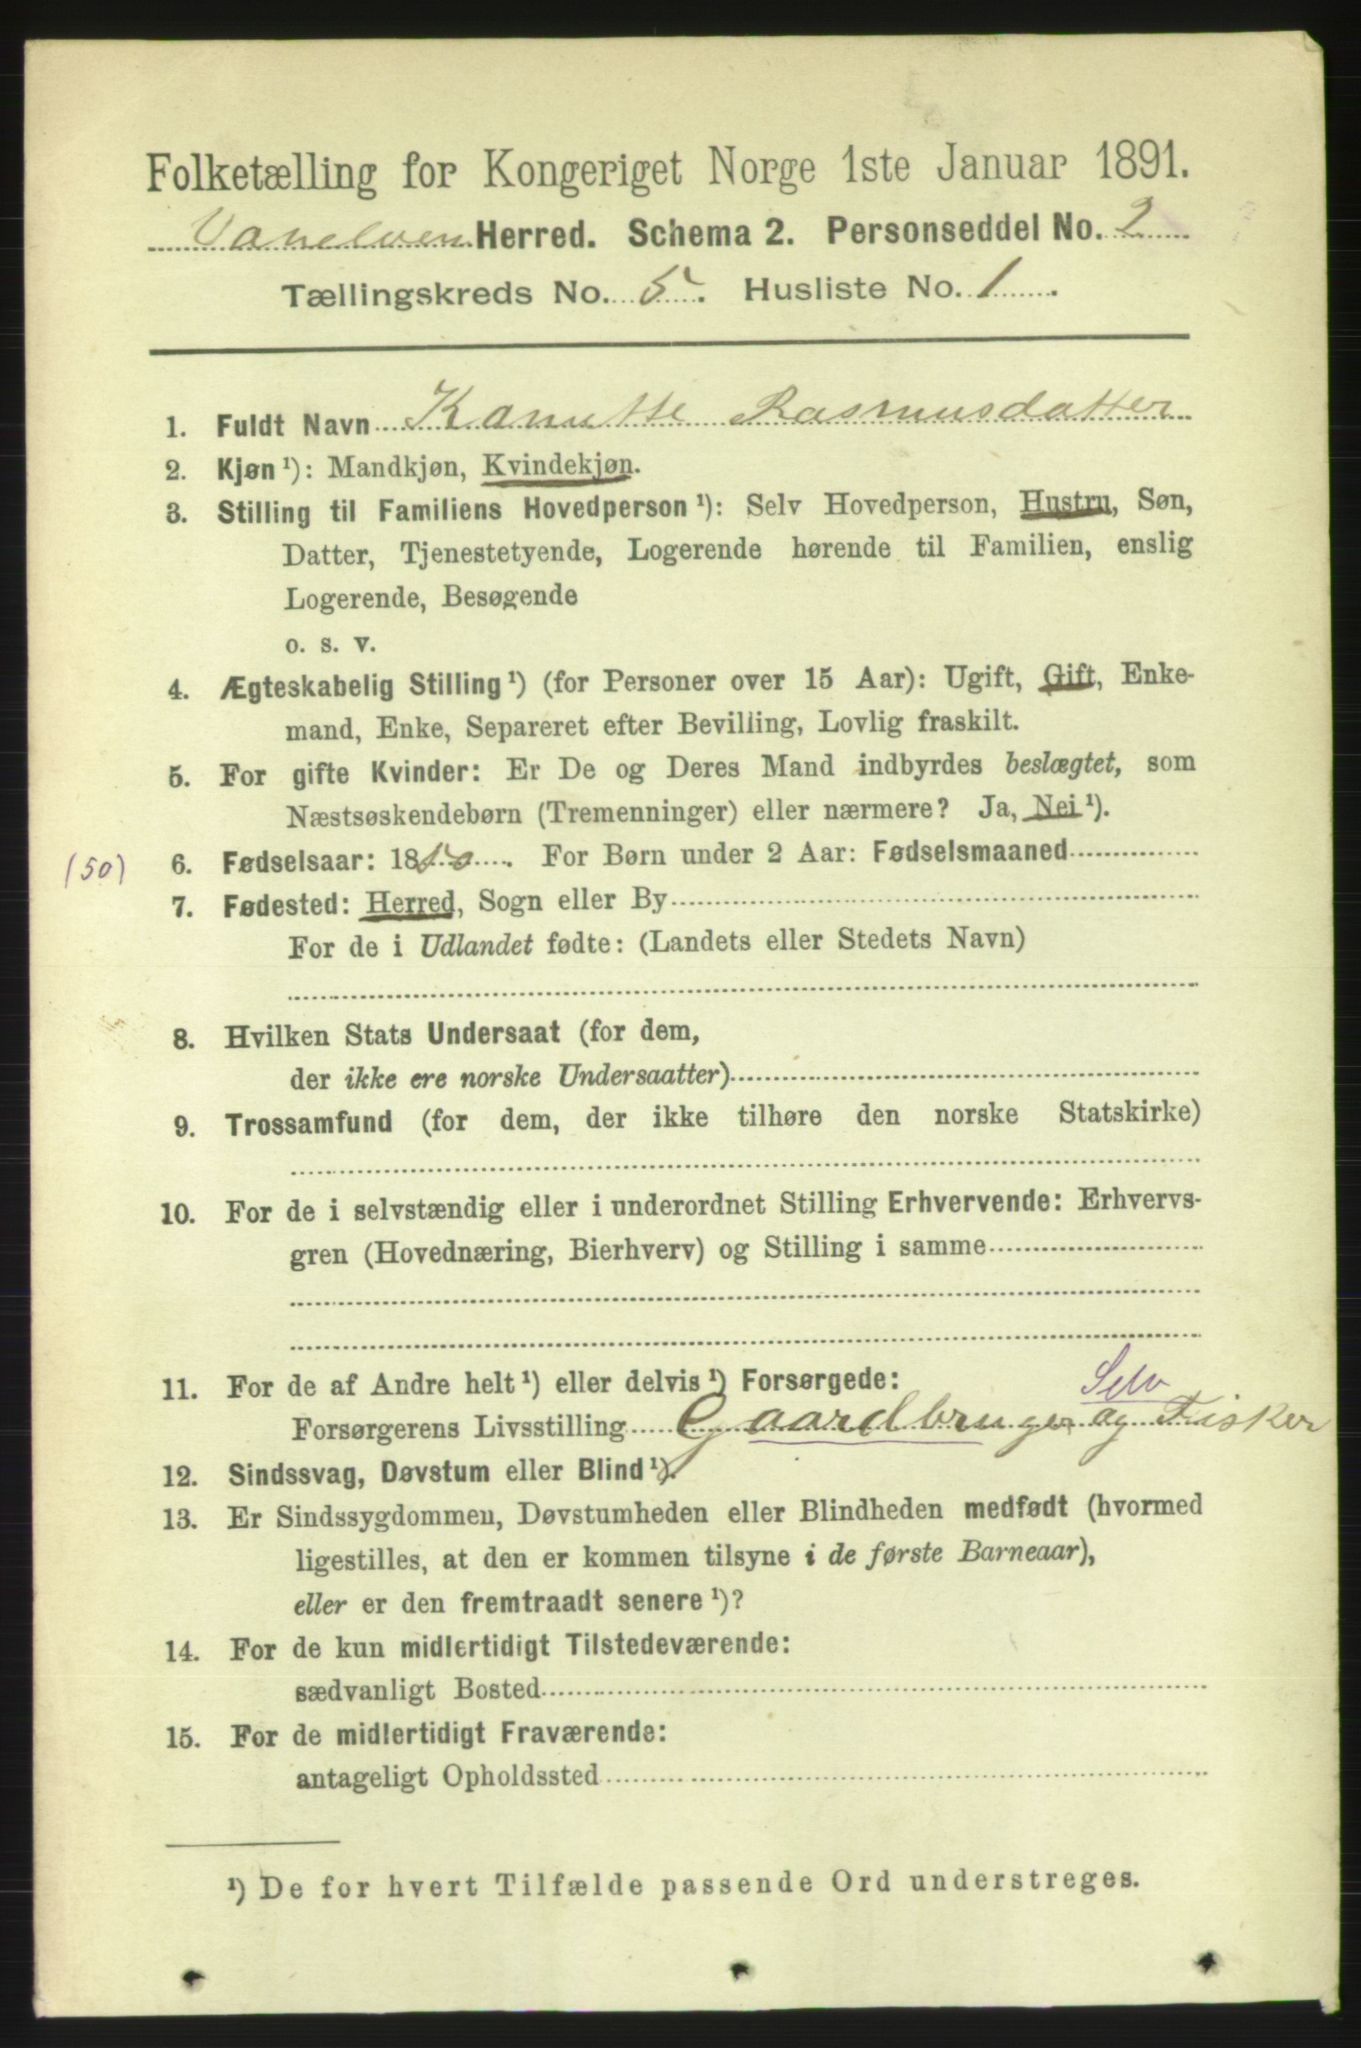 Folketælling for Kongeriget Norge 1ste Januar 1891.
Vanelven Herred. Schema 2. Personseddel No. 2
Tællingskreds No. 5. Husliste No. 1.
1. Fuldt Navn Kanutte Rasmusdatter
2. Kjøn ¹): Mandkjøn, Kvindekjøn.
3. Stilling til Familiens Hovedperson ¹): Selv Hovedperson, Hustru, Søn,
Datter, Tjenestetyende, Logerende hørende til Familien, enslig
Logerende, Besøgende
o. s. v.
4. Ægteskabelig Stilling ¹) (for Personer over 15 Aar): Ugift, Gift, Enke-
mand, Enke, Separeret efter Bevilling, Lovlig fraskilt.
5. For gifte Kvinder: Er De og Deres Mand indbyrdes beslægtet, som
Næstsøskendebørn (Tremenninger) eller nærmere? Ja, Nei ¹).
(50) 6. Fødselsaar: 1850. For Børn under 2 Aar: Fødselsmaaned
7. Fødested: Herred, Sogn eller By
For de i Udlandet fødte: (Landets eller Stedets Navn)
8. Hvilken Stats Undersaat (for dem,
der ikke ere norske Undersaatter)
9. Trossamfund (for dem, der ikke tilhøre den norske Statskirke)
10. For de i selvstændig eller i underordnet Stilling Erhvervende: Erhvervs-
gren (Hovednæring, Bierhverv) og Stilling i samme
11. For de af Andre helt ¹) eller delvis ¹) Forsørgede: Selv
Forsørgerens Livsstilling Gaardbruger og Fisker
12. Sindssvag, Døvstum eller Blind ¹).
13. Er Sindssygdommen, Døvstumheden eller Blindheden medfødt (hvormed
ligestilles, at den er kommen tilsyne i de første Barneaar),
eller er den fremtraadt senere ¹)?
14. For de kun midlertidigt Tilstedeværende:
sædvanligt Bosted
15. For de midlertidigt Fraværende:
antageligt Opholdssted
¹) De for hvert Tilfælde passende Ord understreges.